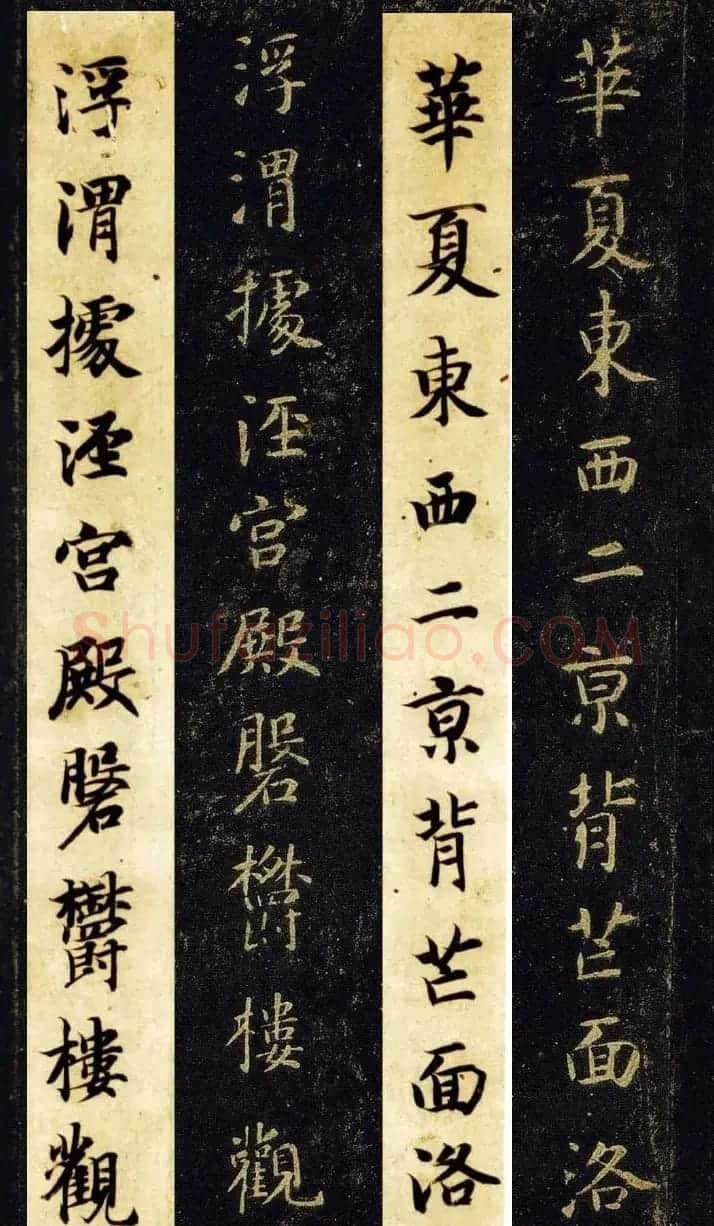 華夏東西二亰背芒面洛
華夏東西二亰背芒面洛
浮渭據涇宮殿磐欝樓觀
浮渭據涇宮殿磐欝樓觀
Shufaziliao.COM